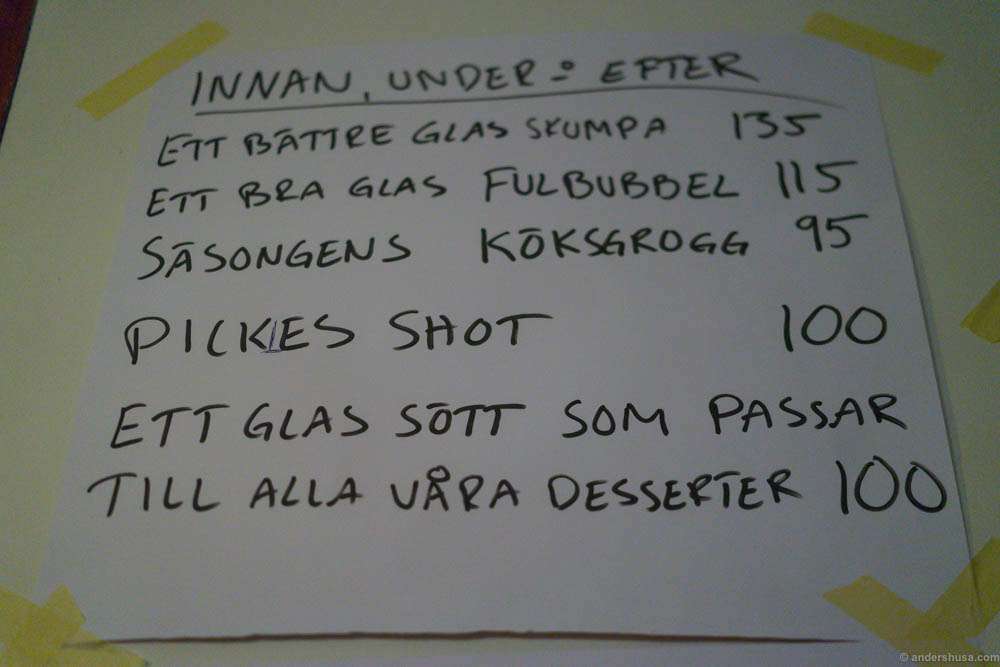 INNAN, UNDER & EFTER
ETT BÄTTRE GLAS SKUMPA 135
ETT BRA GLAS FULBUBBEL 115
SÄSONGENS KÖKSGROGG 95
PICKLES SHOT 100
ETT GLAS SÖTT SOM PASSAR
TILL ALLA VÅRA DESSERTER 100
© andershusa.com